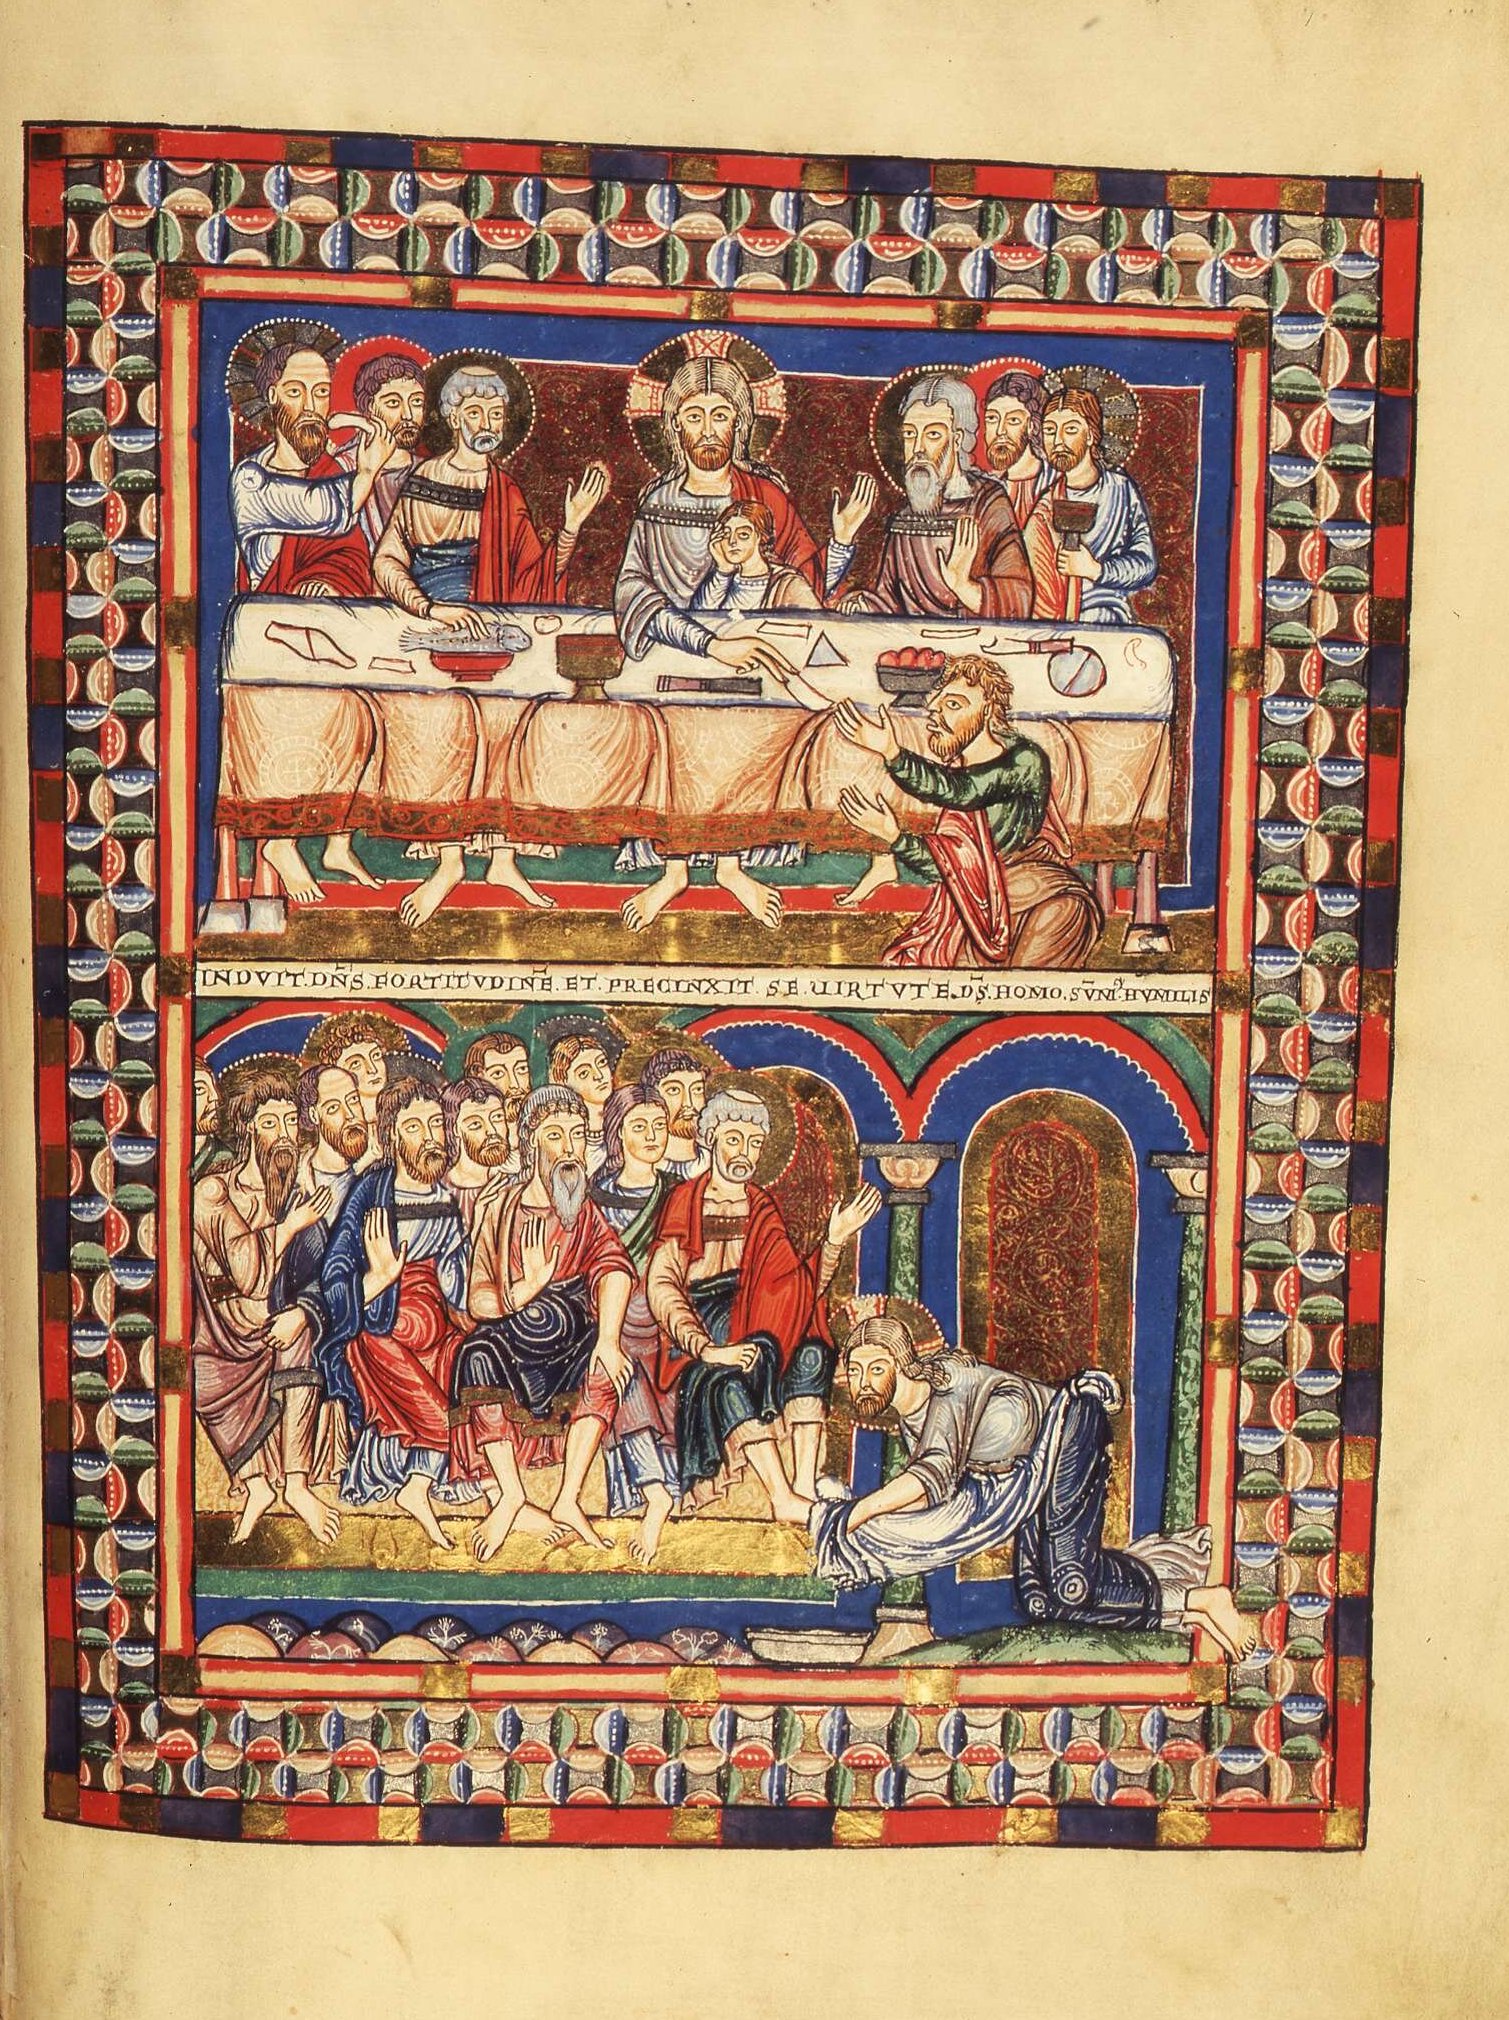 INDVIT. DN̄S. FORTITVDINĒ. ET. PRECINXIT. SE. UIRTVTE. DS̄. HOMO. SV̄MꝰHVMILIS